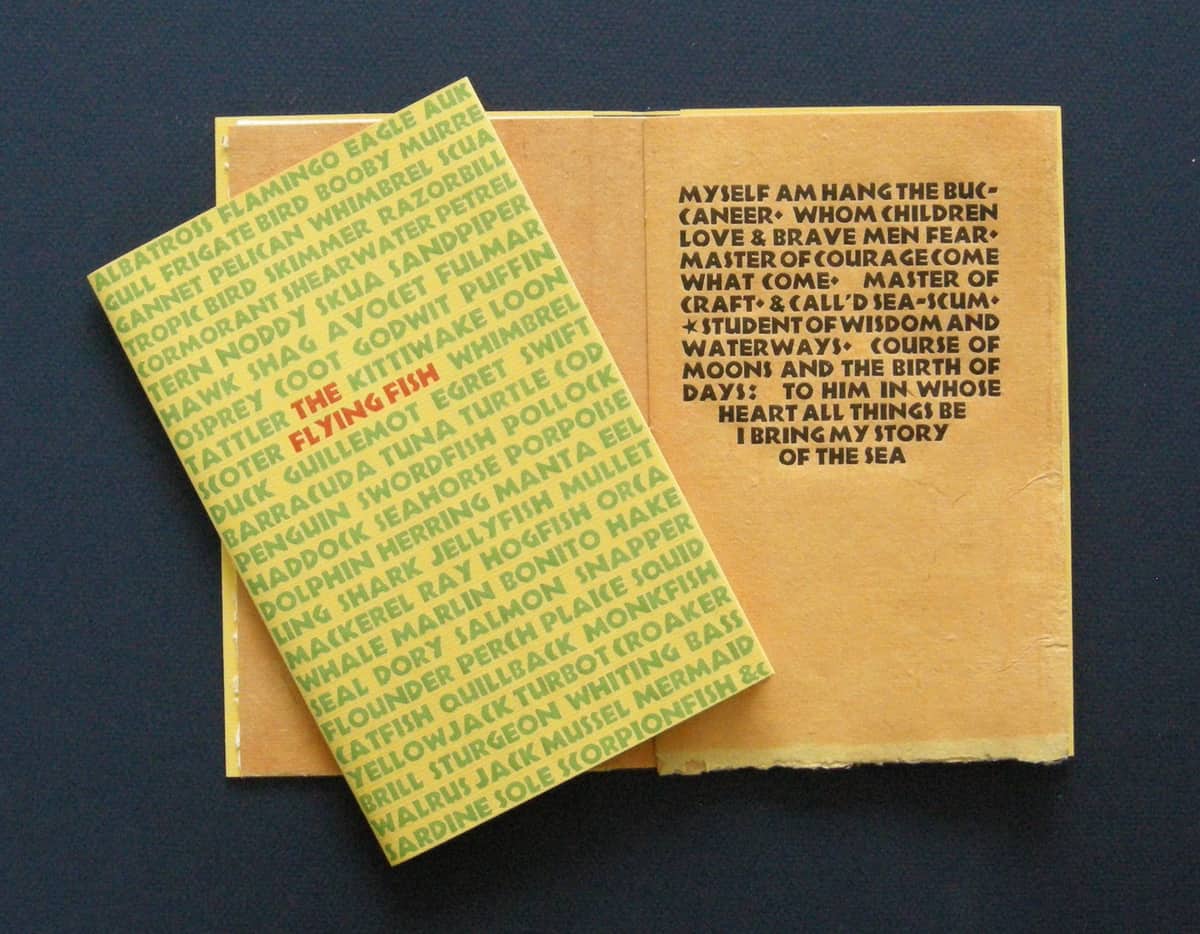 ALBATROSS FLAMINGO EAGLE AUK
GULL FRIGATE BIRD BOOBY MURRE
GANNET PELICAN WHIMBREL SCUA
TROPIC BIRD SKIMMER RAZORBILL
CORMORANT SHEARWATER PETREL
TERN NODDY SKUA SANDPIPER
HAWK SHAG AVOCET FULMAR
OSPREY COOT GODWIT PUFFIN
TATTLER THE KITTIWAKE LOON
SCOTER FLYING FISH WHIMBREL
DUCK GUILLEMOT EGRET SWIFT
BARRACUDA TUNA TURTLE COD
PENGUIN SWORDFISH POLLOCK
HADDOCK SEAHORSE PORPOISE
DOLPHIN HERRING MANTA EEL
LING SHARK JELLYFISH MULLET
MACKEREL RAY HOGFISH ORCA
WHALE MARLIN BONITO HAKE
SEAL DORY SALMON SNAPPER
FLOUNDER PERCH PLAICE SQUID
CATFISH QUILLBACK MONKFISH
YELLOWJACK TURBOT CROAKER
BRILL STURGEON WHITING BASS
WALRUS JACK MUSSEL MERMAID
SARDINE SOLE SCORPIONFISH &
MYSELF AM HANG THE BUC-
CANEER⬩ WHOM CHILDREN
LOVE & BRAVE MEN FEAR⬩
MASTER OF COURAGE COME
WHAT COME⬩ MASTER OF
CRAFT⬩ & CALL'D SEA-SCUM⬩
★STUDENT OF WISDOM AND
WATERWAYS⬩ COURSE OF
MOONS AND THE BIRTH OF
DAYS: TO HIM IN WHOSE
HEART ALL THINGS BE
I BRING MY STORY
OF THE SEA